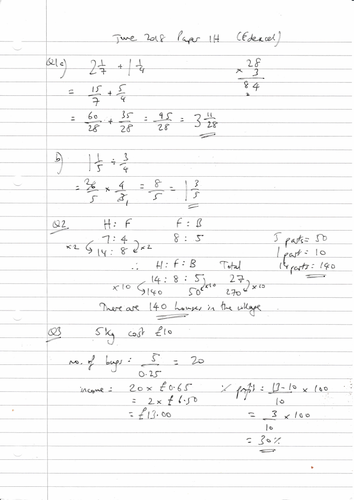 June 2018 Paper 1H (Edexcel)
Q1(a) 2 1/7 + 1 1/4
28
× 3
84
= 15/7 + 5/4
= 60/28 + 35/28 = 95/28 = 3 11/28
b) 1 1/5 ÷ 3/4
= 6/5 × 4/3 = 8/5 = 1 3/5
Q2 H : F F : B
7 : 4 8 : 5
×2 14 : 8 ×2
5 parts = 50
1 part = 10
14 parts = 140
∴ H : F : B Total
14 : 8 : 5 27
×10 140 50 ×10 270 ×10
There are 140 houses in the village
Q3 5kg cost £10
no. of bags = 5/0.25 = 20
income = 20 × £0.65
= 2 × £6.50
= £13.00
% profit = 13-10/10 × 100
= 3/10 × 100
= 30%